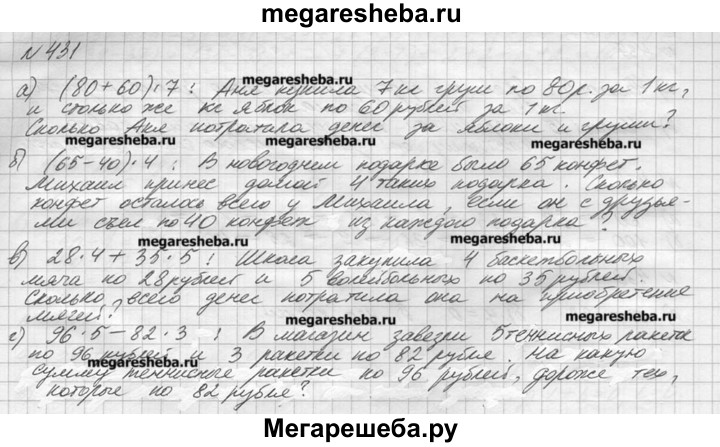 megaresheba.ru
N 431
а) (80+60)·7 : Аня купила 7 кг груш по 80р. за 1 кг,
megaresheba.ru
и столько же кг яблок по 60 рублей за 1 кг.
Сколько Аня потратила денег за яблоки и груши?
megaresheba.ru megaresheba.ru
б) (65-40)·4 : В новогоднем подарке было 65 конфет.
Михаил принес домой 4 таких подарка. Сколько
конфет осталось всего у Михаила, если он с друзья-
ми съел по 40 конфет из каждого подарка
megaresheba.ru megaresheba.ru
в) 28·4 + 35·5 : Школа закупила 4 баскетбольных
мяча по 28 рублей и 5 волейбольных по 35 рублей.
Сколько всего денег потратила она на приобретение
мячей?
megaresheba.ru megaresheba.ru
г) 96·5 - 82·3 : В магазин завезли 5 теннисных ракеток
по 96 рублей и 3 ракетки по 82 рубля. На какую
megaresheba.ru
сумму теннисные ракетки по 96 рублей, дороже тех,
которые по 82 рубля?
megaresheba.ru
Мегарешеба.ру